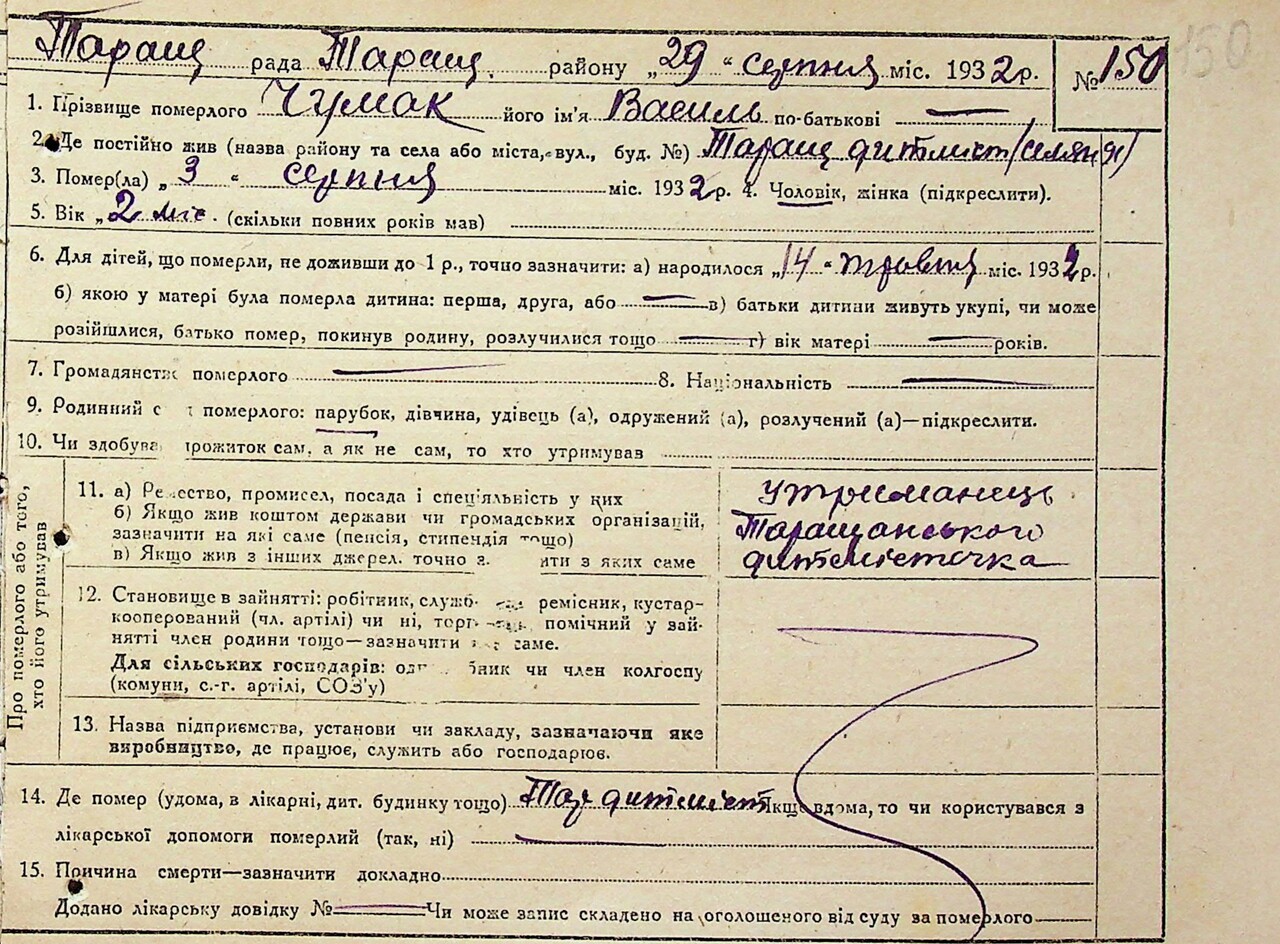 Таращ рада Таращ. району „29“ серпня міс. 1932 р. № 150 150
1. Прізвище померлого Чумак його ім'я Василь по-батькові —
2. Де постійно жив (назва району та села або міста, вул., буд. №) Таращ дитміст (селян я)
3. Помер(ла) „3“ серпня міс. 1932 р. 4. Чоловік, жінка (підкреслити).
5. Вік „2 міс. (скільки повних років мав)
6. Для дітей, що померли, не доживши до 1 р., точно зазначити: а) народилося „14“ травня міс. 1932 р.
б) якою у матері була померла дитина: перша, друга, або — в) батьки дитини живуть укупі, чи може
розійшлися, батько помер, покинув родину, розлучилися тощо — г) вік матері — років.
7. Громадянст померлого — 8. Національність —
9. Родинний с померлого: парубок, дівчина, удівець (а), одружений (а), розлучений (а)—підкреслити.
10. Чи здобува рожиток сам, а як не сам, то хто утримував
Про померлого або того,
хто його утримував
11. а) Ре ество, промисел, посада і спеціяльність у них
б) Якщо жив коштом держави чи громадських організацій,
зазначити на які саме (пенсія, стипендія тощо)
в) Якщо жив з інших джерел. точно з. ити з яких саме
утриманець
Таращанського
дитмістечка
12. Становище в зайнятті: робітник, служб ремісник, кустар-
кооперований (чл. артілі) чи ні, торг помічний у зай-
нятті член родини тощо—зазначити саме.
Для сільських господарів: од бник чи член колгоспу
(комуни, с.-г. артілі, СОЗ'у)
13. Назва підприємства, установи чи закладу, зазначаючи яке
виробництво, де працює, служить або господарює.
14. Де помер (удома, в лікарні, дит. будинку тощо) Тар дитміст Якщо вдома, то чи користувався з
лікарської допомоги померлий (так, ні) —
15. Причина смерти—зазначити докладно
Додано лікарську довідку № — Чи може запис складено на оголошеного від суду за померлого